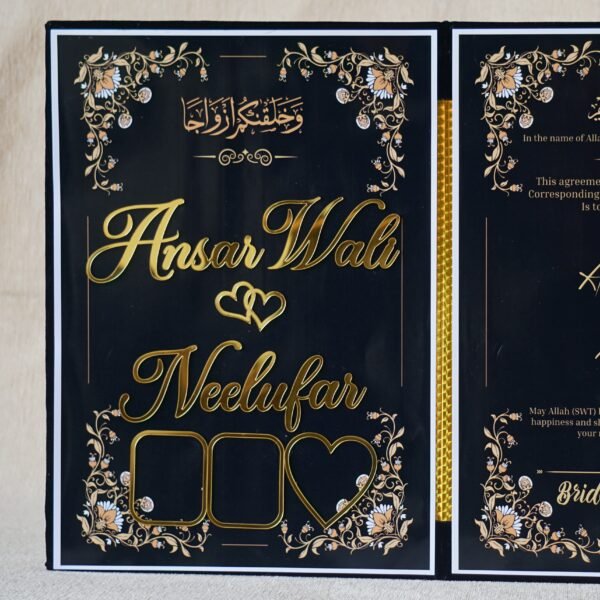 وَخَلَقْنَٰكُمْ أَزْوَاجًا
Ansar Wali
Neelufar
In the name of Alla
This agreeme
Corresponding
Is to
A
May Allah (SWT) b
happiness and sh
your
Brid